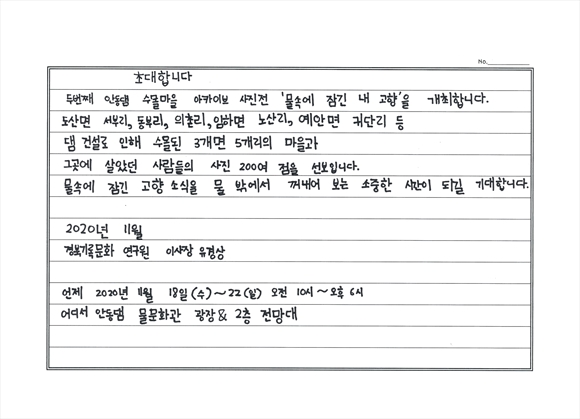 No.
초대합니다
두번째 안동댐 수몰마을 아카이브 사진전 '물속에 잠긴 내 고향'을 개최합니다.
도산면 서부리, 동부리, 의촌리, 임하면 노산리, 예안면 귀단리 등
댐 건설로 인해 수몰된 3개면 5개리의 마을과
그곳에 살았던 사람들의 사진 200여 점을 선보입니다.
물속에 잠긴 고향 소식을 물 밖에서 꺼내어 보는 소중한 시간이 되길 기대합니다.
2020년 11월
경북기록문화 연구원 이사장 유경상
언제 2020년 11월 18일(수)~22(일) 오전 10시~오후 6시
어디서 안동댐 물문화관 광장 & 2층 전망대